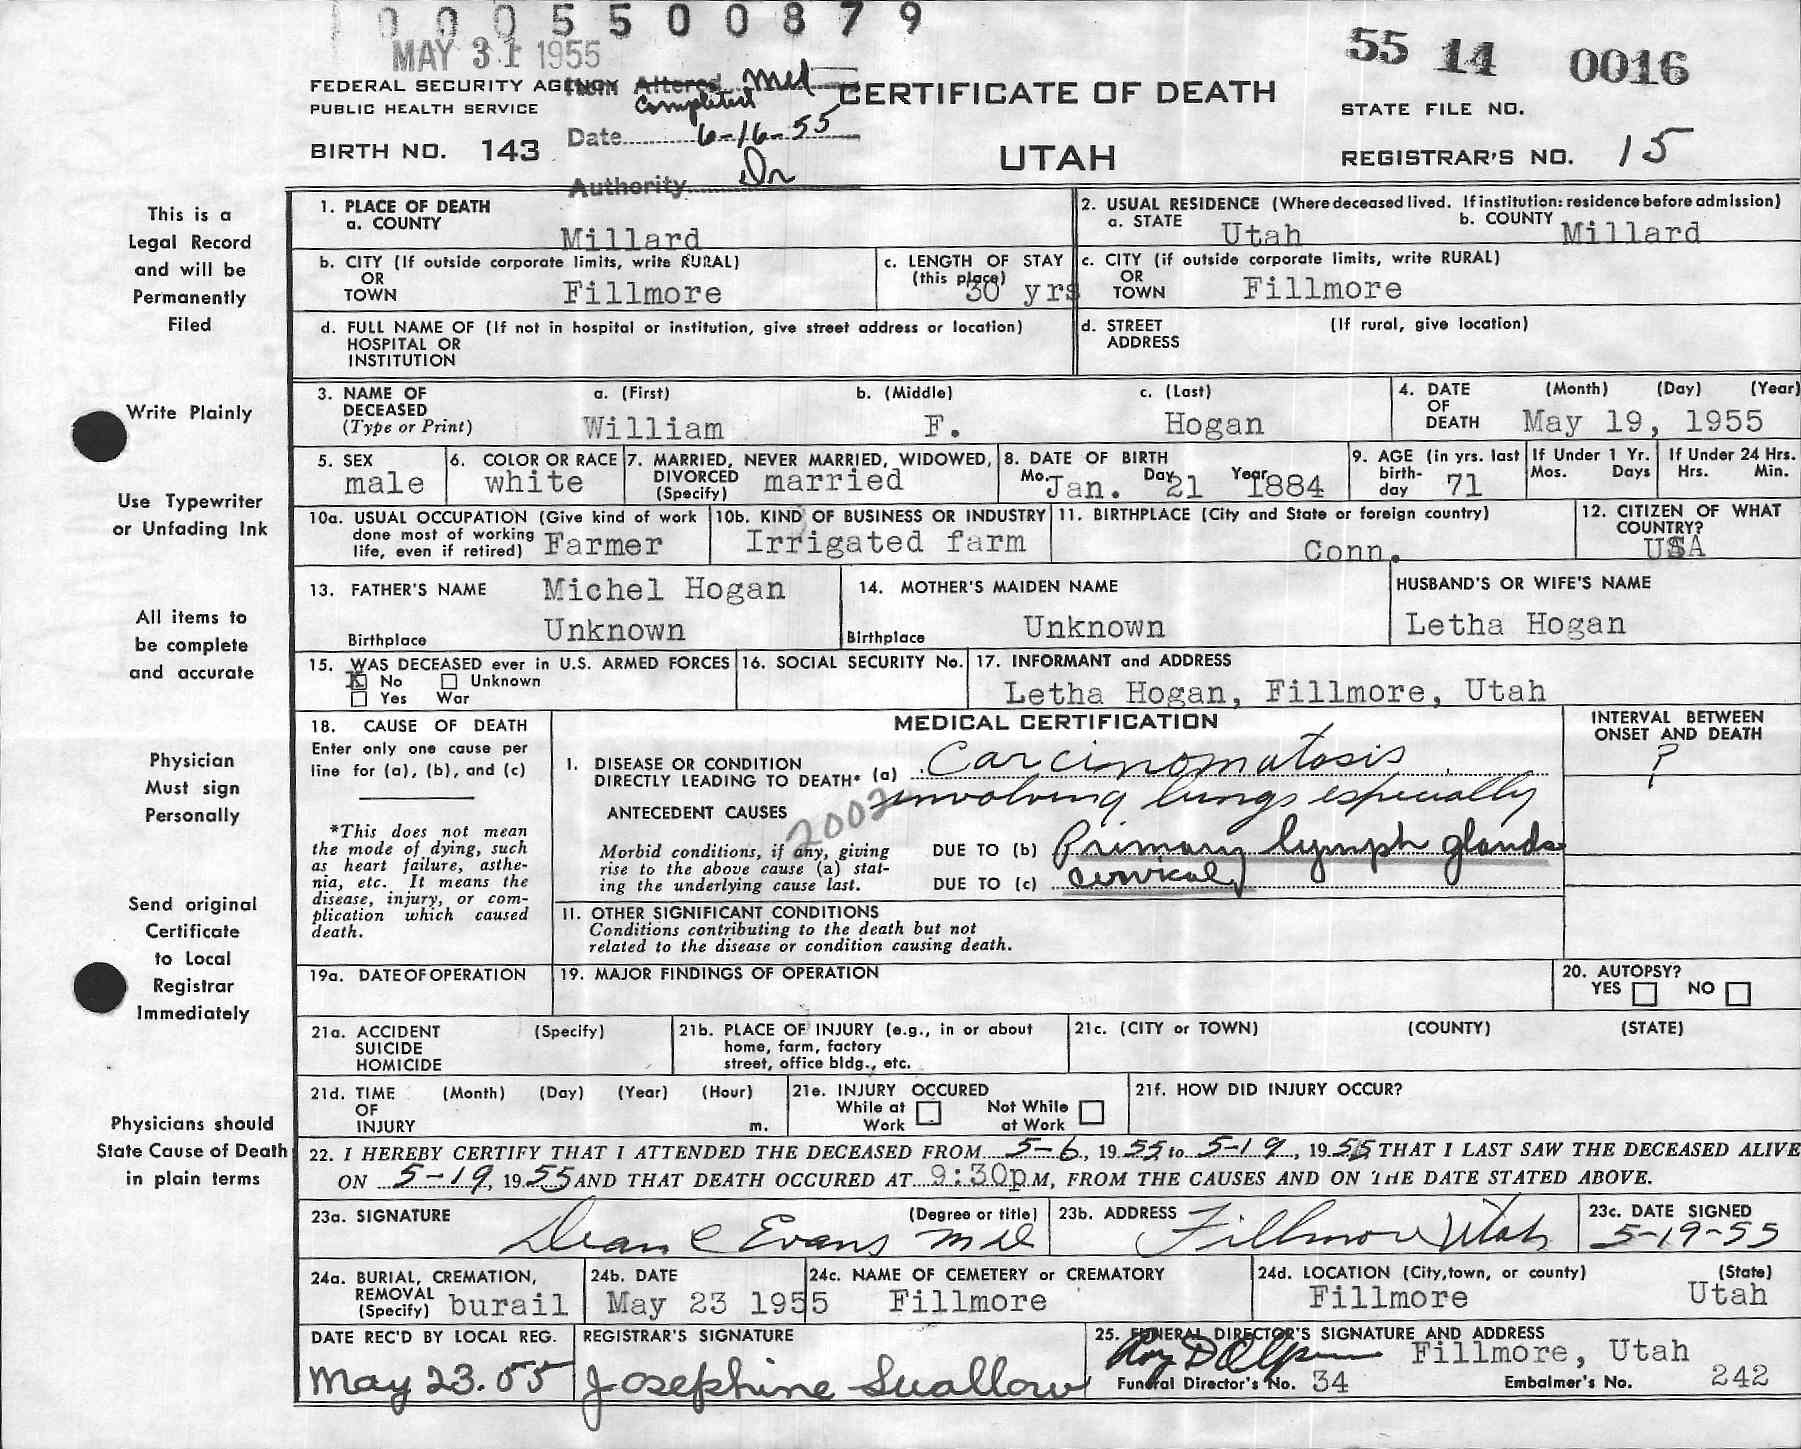 0 0 0 5 5 0 0 8 7 9
MAY 31 1955
55 14 0016
FEDERAL SECURITY AGENCY
PUBLIC HEALTH SERVICE
Item Altered Med
Completed
CERTIFICATE OF DEATH
STATE FILE NO.
BIRTH NO. 143
Date 6-16-55
UTAH
REGISTRAR'S NO. 15
Authority Dr
This is a
Legal Record
and will be
Permanently
Filed
1. PLACE OF DEATH
a. COUNTY
Millard
2. USUAL RESIDENCE (Where deceased lived. If institution: residence before admission)
a. STATE Utah b. COUNTY Millard
b. CITY (If outside corporate limits, write RURAL)
OR
TOWN Fillmore
c. LENGTH OF STAY
(this place)
30 yrs
c. CITY (if outside corporate limits, write RURAL)
OR
TOWN Fillmore
d. FULL NAME OF (If not in hospital or institution, give street address or location)
HOSPITAL OR
INSTITUTION
d. STREET (If rural, give location)
ADDRESS
Write Plainly
3. NAME OF
DECEASED
(Type or Print)
a. (First) b. (Middle) c. (Last)
William F. Hogan
4. DATE (Month) (Day) (Year)
OF
DEATH May 19, 1955
Use Typewriter
or Unfading Ink
5. SEX
male
6. COLOR OR RACE
white
7. MARRIED, NEVER MARRIED, WIDOWED,
DIVORCED married
(Specify)
8. DATE OF BIRTH
Mo. Day Year
Jan. 21 1884
9. AGE (in yrs. last
birth-
day 71
If Under 1 Yr.
Mos. Days
If Under 24 Hrs.
Hrs. Min.
10a. USUAL OCCUPATION (Give kind of work
done most of working
life, even if retired) Farmer
10b. KIND OF BUSINESS OR INDUSTRY
Irrigated farm
11. BIRTHPLACE (City and State or foreign country)
Conn.
12. CITIZEN OF WHAT
COUNTRY?
USA
All items to
be complete
and accurate
13. FATHER'S NAME Michel Hogan
Birthplace Unknown
14. MOTHER'S MAIDEN NAME
Birthplace Unknown
HUSBAND'S OR WIFE'S NAME
Letha Hogan
15. WAS DECEASED ever in U.S. ARMED FORCES
X No Unknown
Yes War
16. SOCIAL SECURITY No.
17. INFORMANT and ADDRESS
Letha Hogan, Fillmore, Utah
Physician
Must sign
Personally
18. CAUSE OF DEATH
Enter only one cause per
line for (a), (b), and (c)
*This does not mean
the mode of dying, such
as heart failure, asthe-
nia, etc. It means the
disease, injury, or com-
plication which caused
death.
MEDICAL CERTIFICATION
I. DISEASE OR CONDITION
DIRECTLY LEADING TO DEATH* (a) Carcinomatosis
involving lungs especially
ANTECEDENT CAUSES
2002
Morbid conditions, if any, giving
rise to the above cause (a) stat-
ing the underlying cause last.
DUE TO (b) Primary lymph glands
DUE TO (c) cervical
INTERVAL BETWEEN
ONSET AND DEATH
?
II. OTHER SIGNIFICANT CONDITIONS
Conditions contributing to the death but not
related to the disease or condition causing death.
Send original
Certificate
to Local
Registrar
Immediately
19a. DATE OF OPERATION
19. MAJOR FINDINGS OF OPERATION
20. AUTOPSY?
YES NO
21a. ACCIDENT (Specify)
SUICIDE
HOMICIDE
21b. PLACE OF INJURY (e.g., in or about
home, farm, factory
street, office bldg., etc.
21c. (CITY or TOWN) (COUNTY) (STATE)
21d. TIME (Month) (Day) (Year) (Hour)
OF
INJURY m.
21e. INJURY OCCURED
While at Not While
Work at Work
21f. HOW DID INJURY OCCUR?
Physicians should
State Cause of Death
in plain terms
22. I HEREBY CERTIFY THAT I ATTENDED THE DECEASED FROM 5-6, 1955 to 5-19, 1955 THAT I LAST SAW THE DECEASED ALIVE
ON 5-19, 1955 AND THAT DEATH OCCURED AT 9:30p M, FROM THE CAUSES AND ON THE DATE STATED ABOVE.
23a. SIGNATURE (Degree or title)
Dean C Evans MD
23b. ADDRESS
Fillmore Utah
23c. DATE SIGNED
5-19-55
24a. BURIAL, CREMATION,
REMOVAL
(Specify) burail
24b. DATE
May 23 1955
24c. NAME OF CEMETERY or CREMATORY
Fillmore
24d. LOCATION (City, town, or county) (State)
Fillmore Utah
DATE REC'D BY LOCAL REG.
May 23.55
REGISTRAR'S SIGNATURE
Josephine Swallow
25. FUNERAL DIRECTOR'S SIGNATURE AND ADDRESS
Fillmore, Utah
Funeral Director's No. 34 Embalmer's No. 242